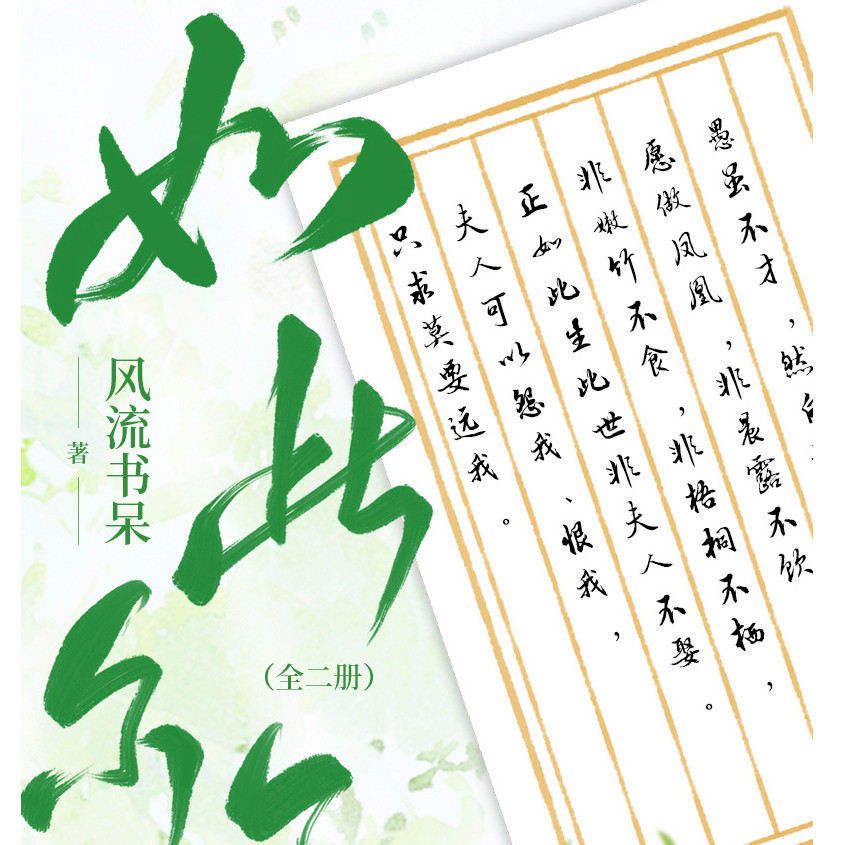 如此
风流书呆
著
(全二册)
愚虽不才,然
愿做凤凰,非晨露不饮
非嫩竹不食,非梧桐不栖,
正如此生此世非夫人不娶。
夫人可以怨我、恨我,
只求莫要远我。